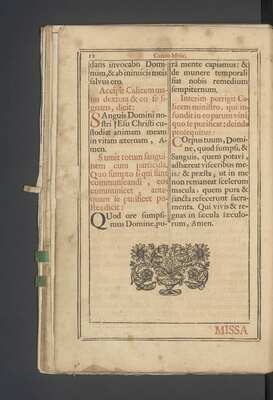 12 Canon Missæ.
dans invocabo Domi-
num, & ab inimicis meis
salvus ero.
Accipit Calicem ma-
nu dextera & eo se si-
gnans, dicit:
SAnguis Domini no-
stri JEsu Christi cu-
stodiat animam meam
in vitam æternam, A-
men.
Sumit totum sangui-
nem cum particula.
Quo sumpto si qui sint
communicandi, eos
communicet, ante-
quam se purificet po-
stea dicit:
QUod ore sumpsi-
mus Domine, pu-
râ mente capiamus: &
de munere temporali
fiat nobis remedium
sempiternum.
Interim porrigit Ca-
licem ministro, qui in-
fundit in eo parum vini,
quo se purificat: deinde
prosequitur:
COrpus tuum, Domi-
ne, quod sumpsi, &
Sanguis, quem potavi,
adhæreat visceribus me-
is: & præsta, ut in me
non remaneat scelerum
macula: quem pura &
sancta refecerunt sacra-
menta. Qui vivis & re-
gnas in sæcula sæculo-
rum, Amen.
MISSA